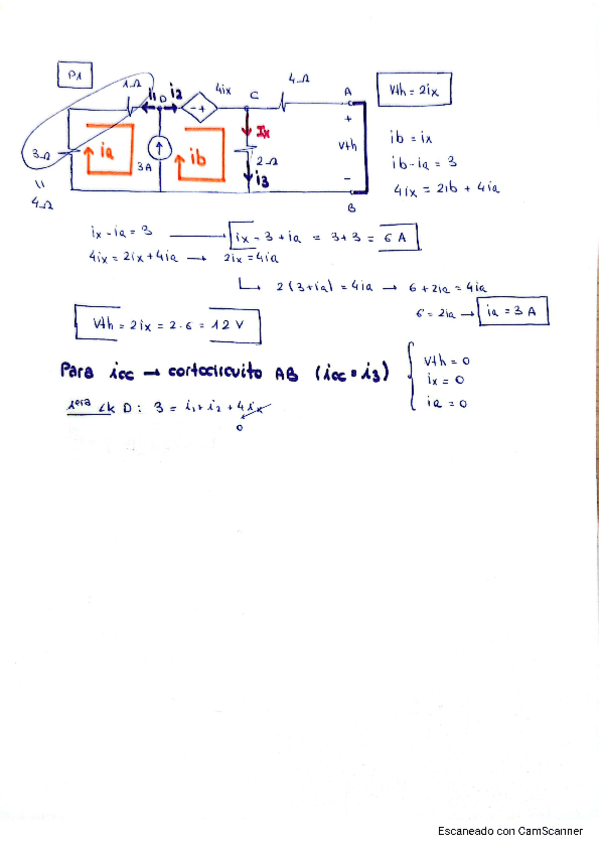 P1
1Ω
i1
D
i2
4ix
C
4Ω
A
Vth = 2ix
+
Vth
-
B
3Ω
=
4Ω
ia
3A
ib
Ix
2Ω
i3
ib = ix
ib - ia = 3
4ix = 2ib + 4ia
ix - ia = 3 → ix = 3 + ia = 3 + 3 = 6 A
4ix = 2ix + 4ia → 2ix = 4ia
→ 2(3+ia) = 4ia → 6 + 2ia = 4ia
6 = 2ia → ia = 3 A
Vth = 2ix = 2·6 = 12 V
Para icc → cortocircuito AB (icc = i3)
Vth = 0
ix = 0
ia = 0
1era LK D: 3 = i1 + i2 + 4ix
0
Escaneado con CamScanner